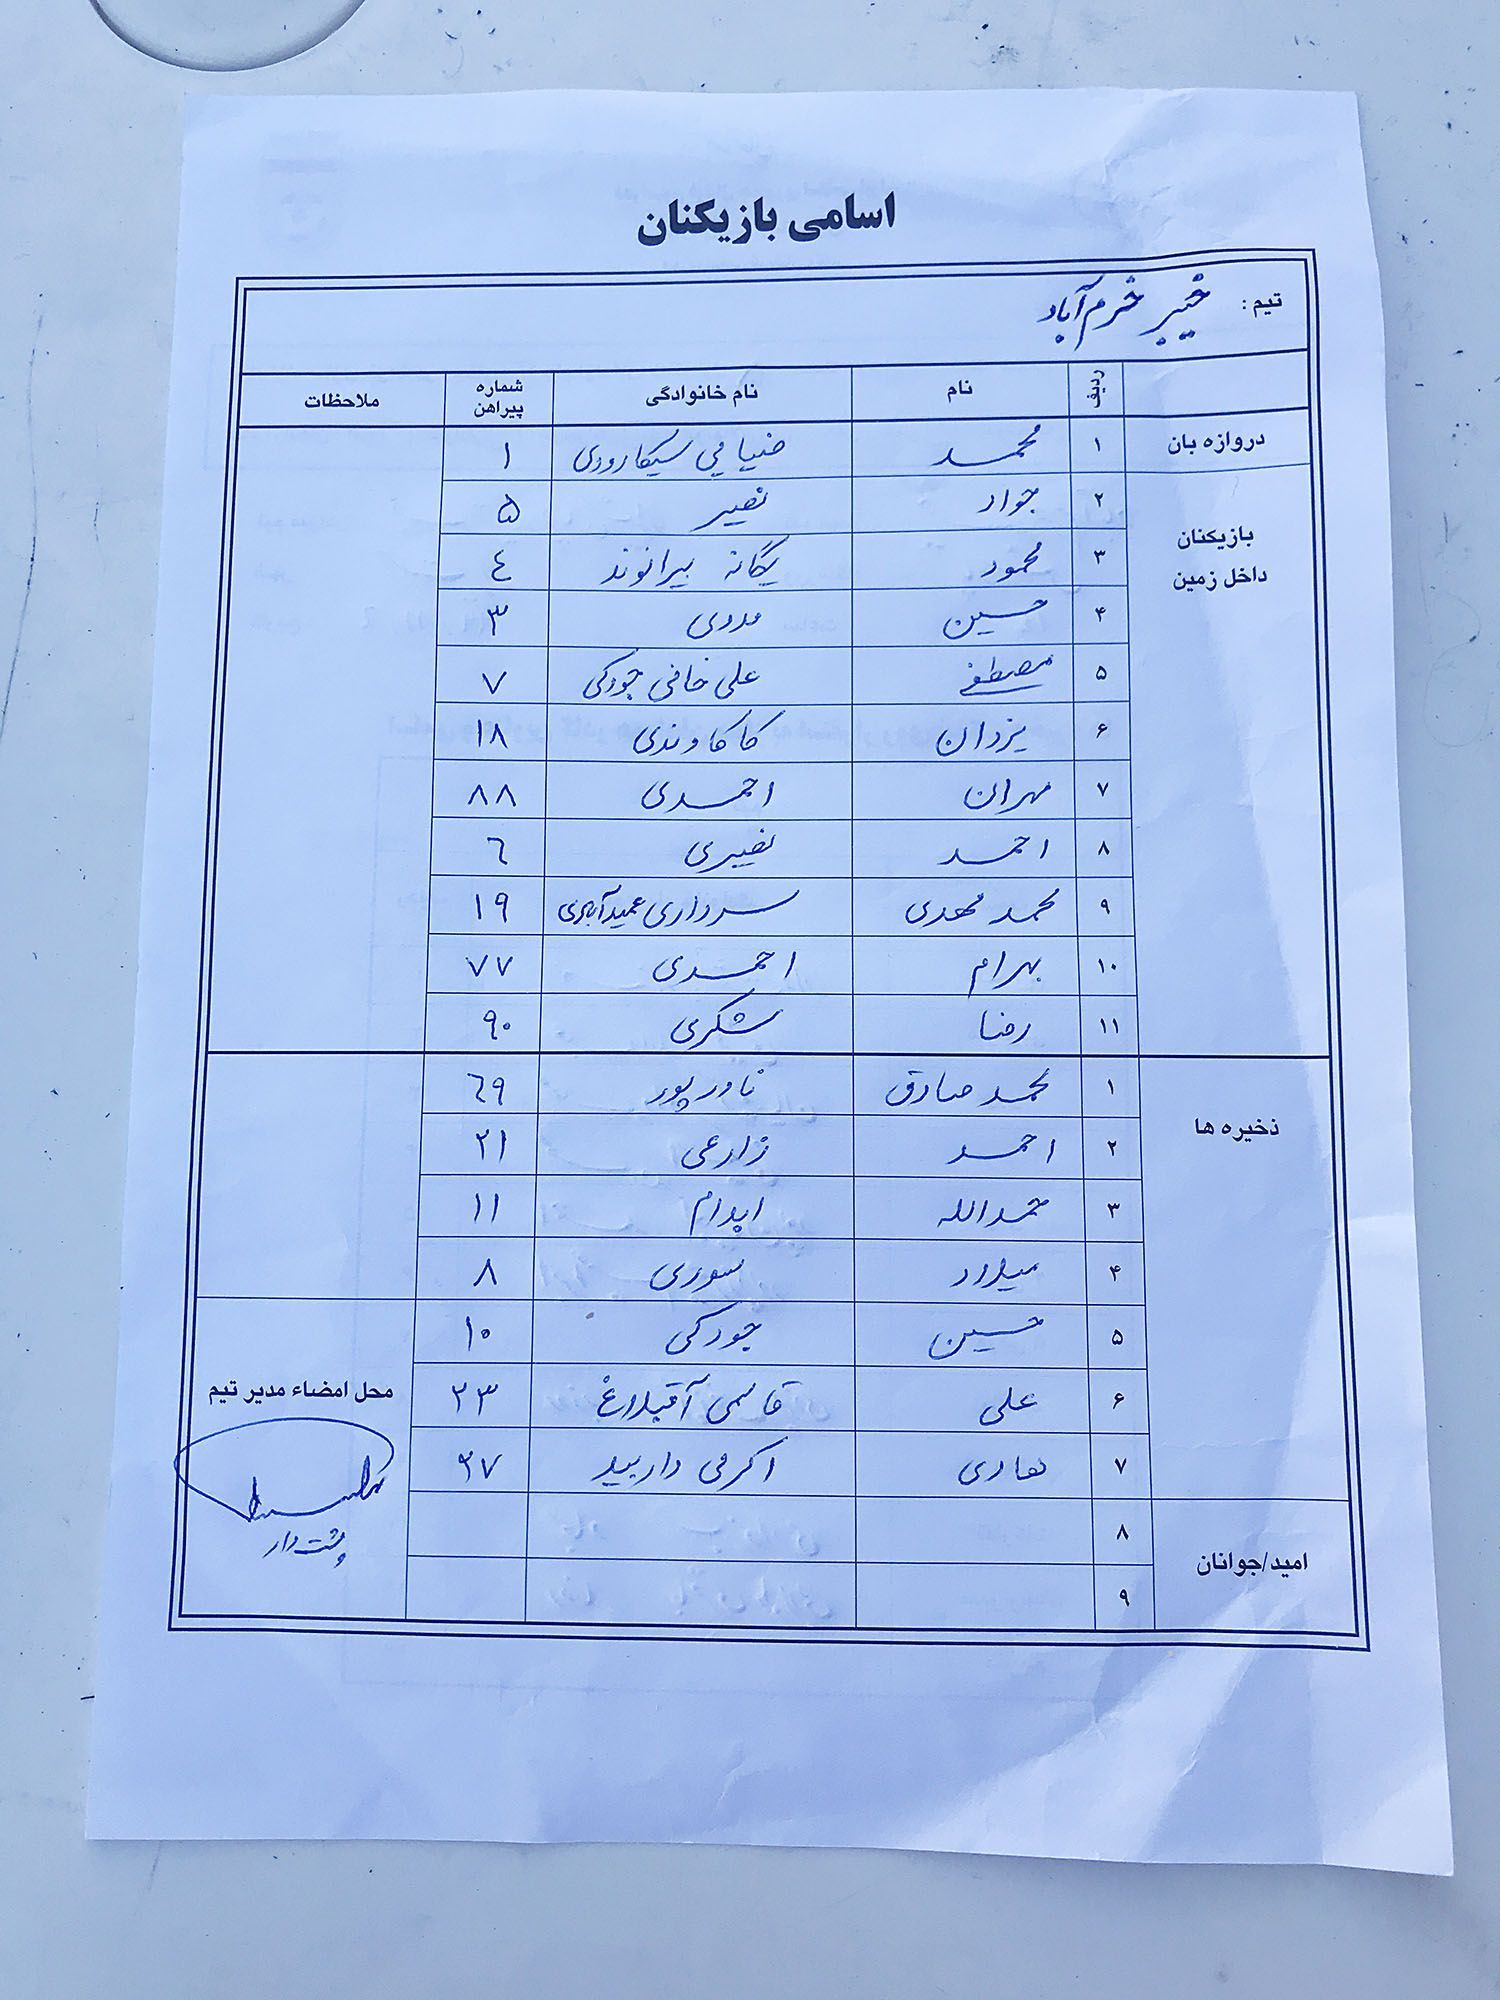 اسامی بازیکنان
تیم : خیبر خرم‌آباد
ردیف نام نام خانوادگی شماره پیراهن ملاحظات
دروازه بان ۱ محمد ضیایی سیگارودی ۱
بازیکنان داخل زمین
۲ جواد نصیر ۵
۳ محمود یگانه بیرانوند ٤
۴ حسین مددی ۳
۵ مصطفی علی خانی جودکی ۷
۶ یزدان کاکاوندی ۱۸
۷ مهران احمدی ۸۸
۸ احمد نصیری ٦
۹ محمد مهدی سرداری عمیدآبادی ۱۹
۱۰ بهرام احمدی ۷۷
۱۱ رضا شکری ۹۰
ذخیره ها
۱ محمد صادق نادرپور ٦۹
۲ احمد زارعی ۲۱
۳ حمدالله ایدام ۱۱
۴ میلاد سوری ۸
۵ حسین جودکی ۱۰
۶ علی قاسمی آقبلاغ ۲۳
۷ هادی اکرمی ۳۷
امید/جوانان
۸
۹
محل امضاء مدیر تیم
پشت‌دار